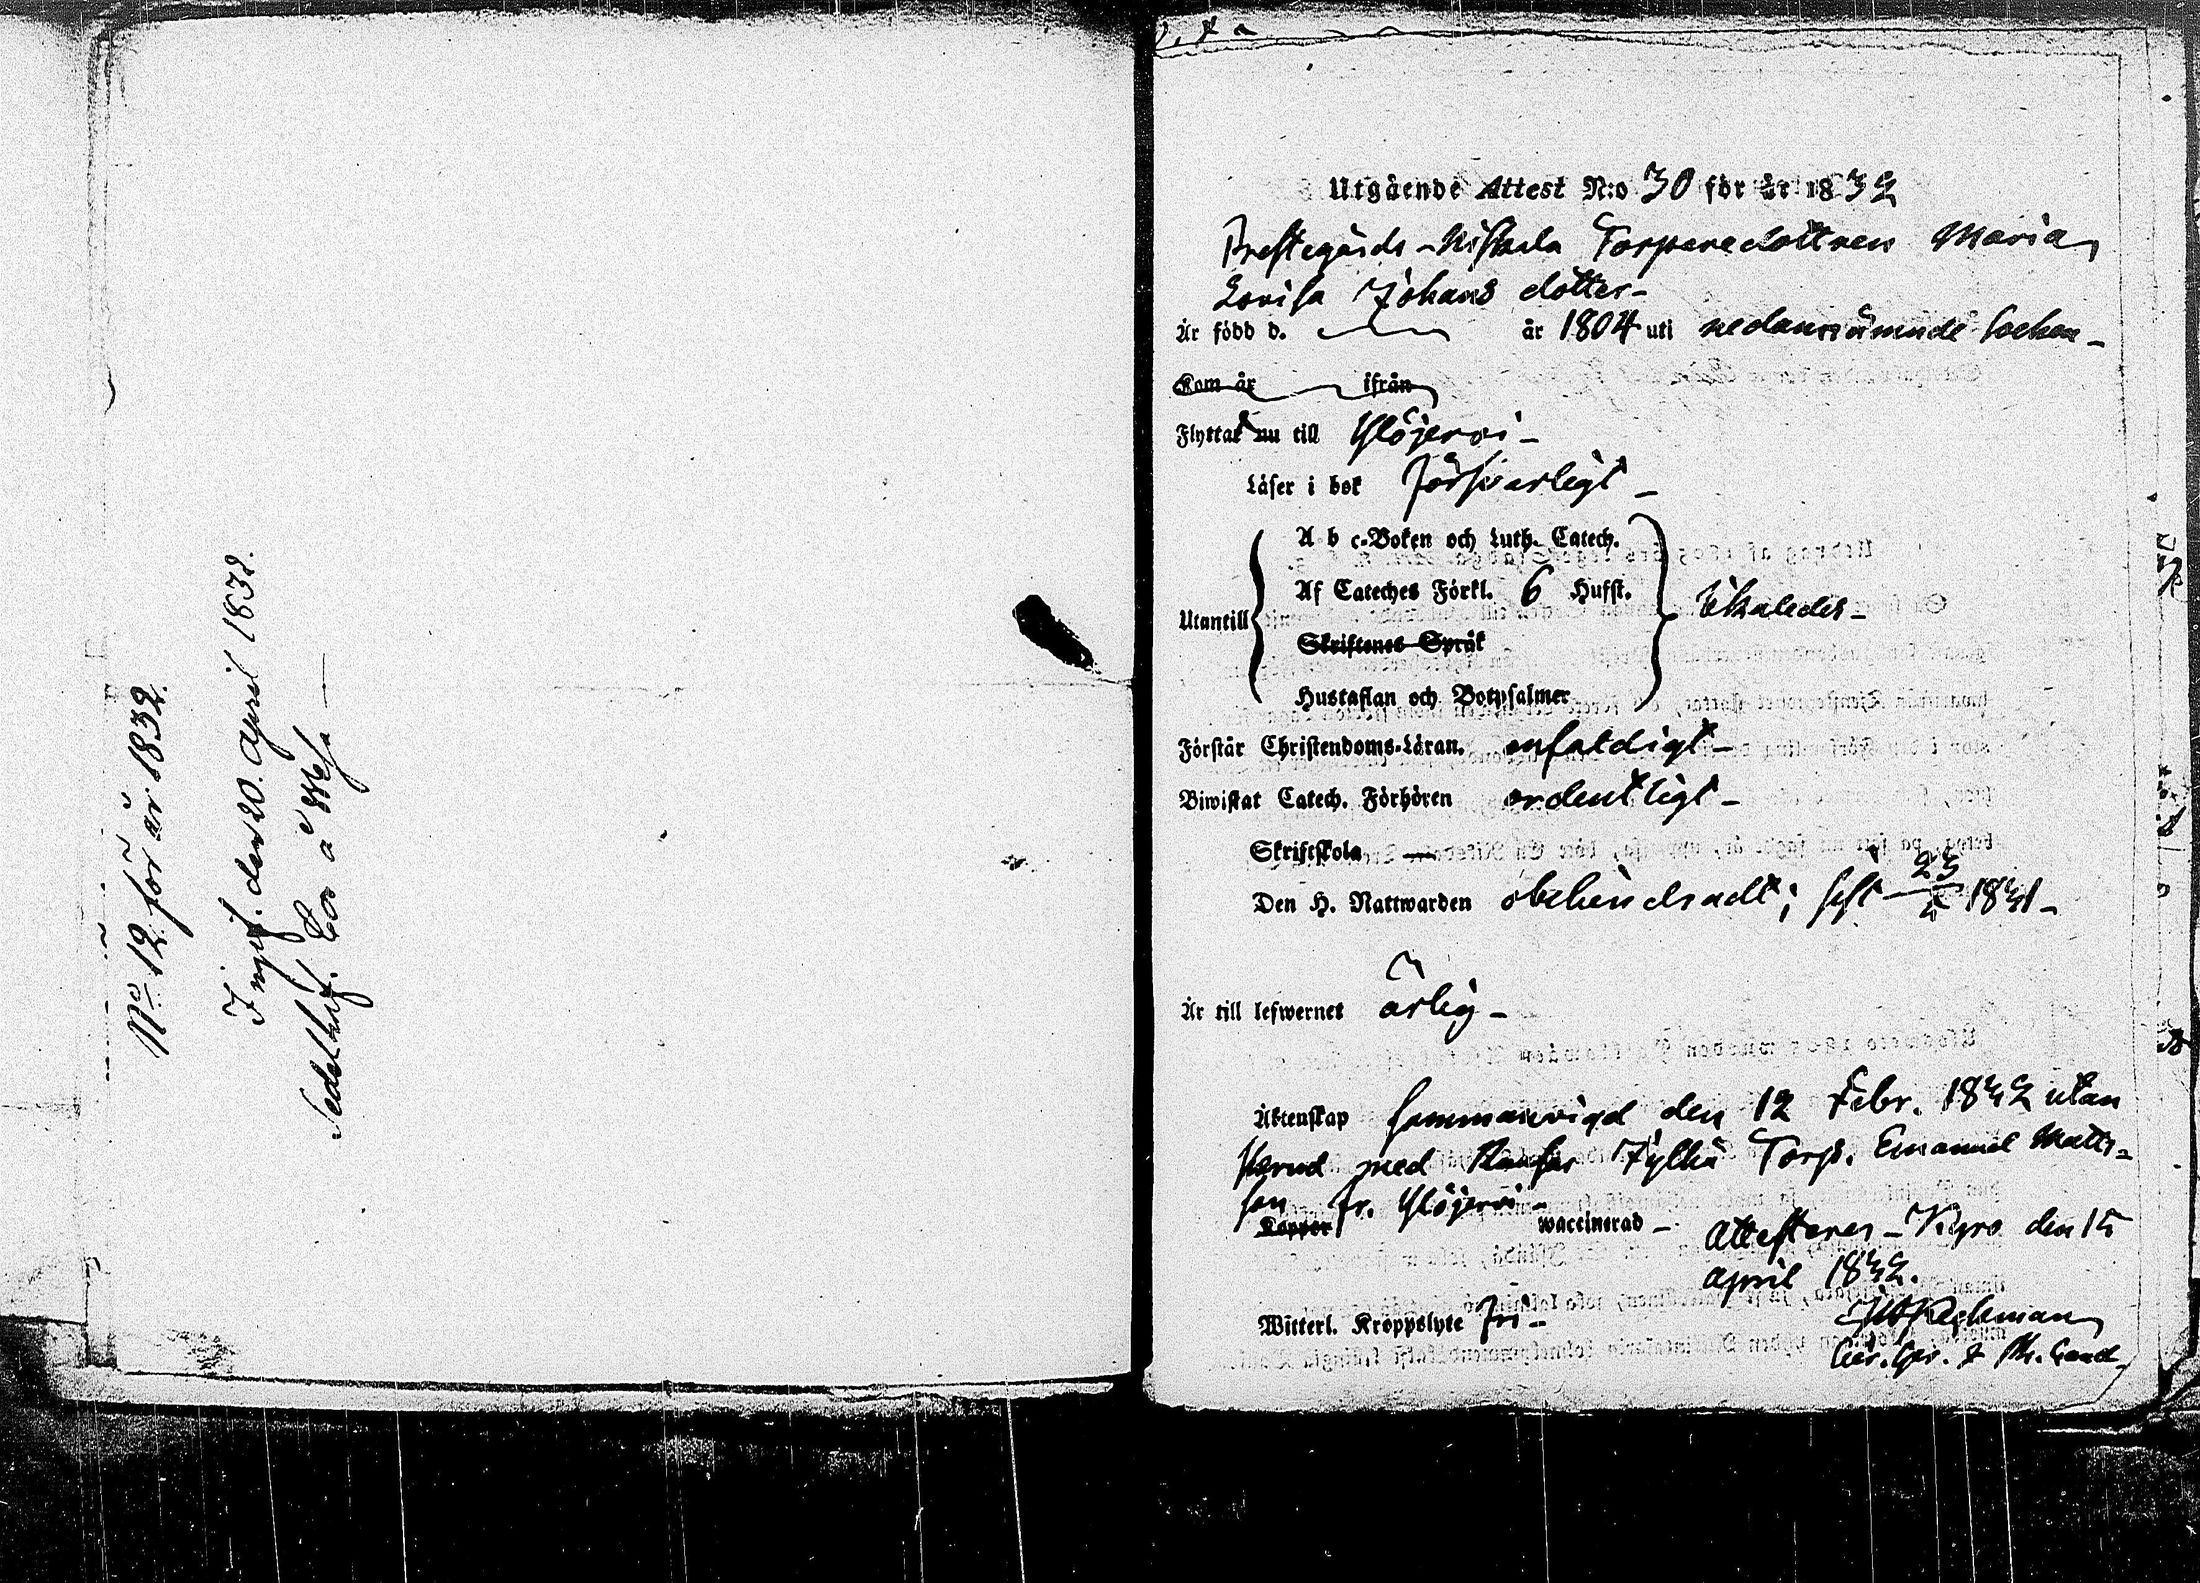 No 12 för år 1832.
Ingif. den 20. April 1832.
Utgående Attest N:o 30 för år 1832
Prestegårds Torparedottren Maria
Lovisa Johans dotter -
År född d. år 1804 uti nedannämnde Socken -
Kom år ifrån
Flyttat nu till Ylöjervi -
Läser i bok försvarligt -
A b c-Boken och Luth. Catech.
Af Cateches Förkl. 6 Hufst.
Utantill
Skriftenes Språk
Hustaflan och Botpsalmer
Förstår Christendoms-Läran. enfaldigt -
Biwistat Catech. Förhören ordentligt -
Skriftskola —
Den H. Nattwarden obehindradt; sist 23/5 1831 -
Är till lefwernet ärlig -
Äktenskap sammanvigd den 12 Febr. 1832 utan
med Torp. Emanuel Matts-
son fr. Ylöjervi -
Koppor waccinerad - Attesteras - Kyro den 15
April 1832.
Witterl. Kroppslyte Fri -